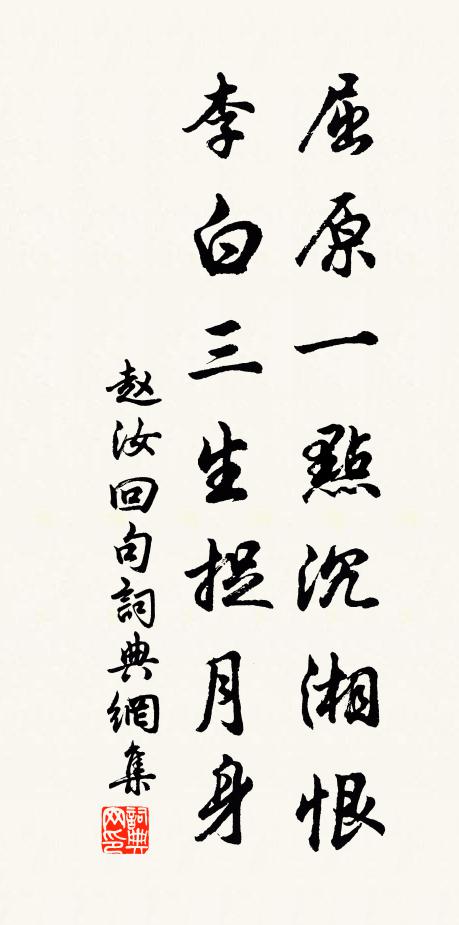 屈原一點沉湘恨
李白三生捉月身
赵汝回句詞典網集
詞典网印